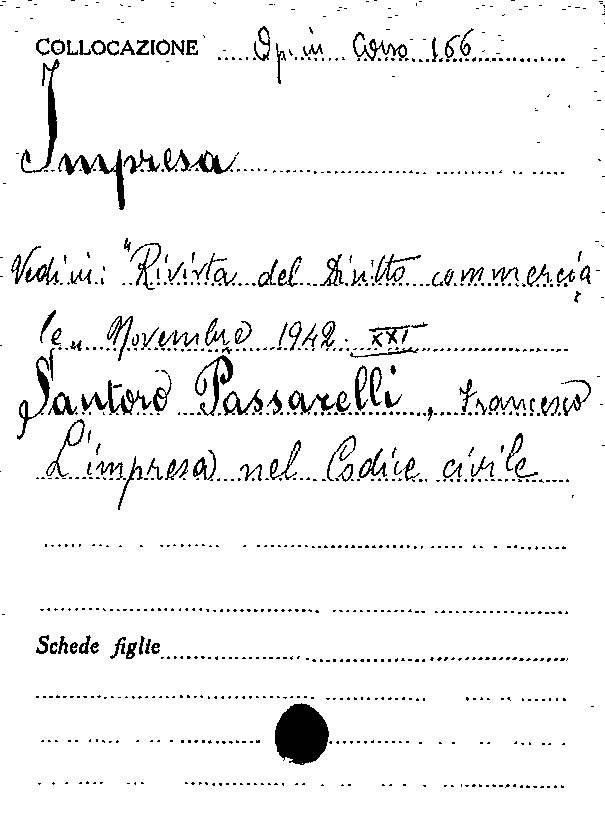 COLLOCAZIONE Op. in Corso 166
Impresa
Vedi in: "Rivista del Diritto commercia
le„ Novembre 1942. XXI
Santoro Passarelli, Francesco
L'impresa nel Codice civile
Schede figlie